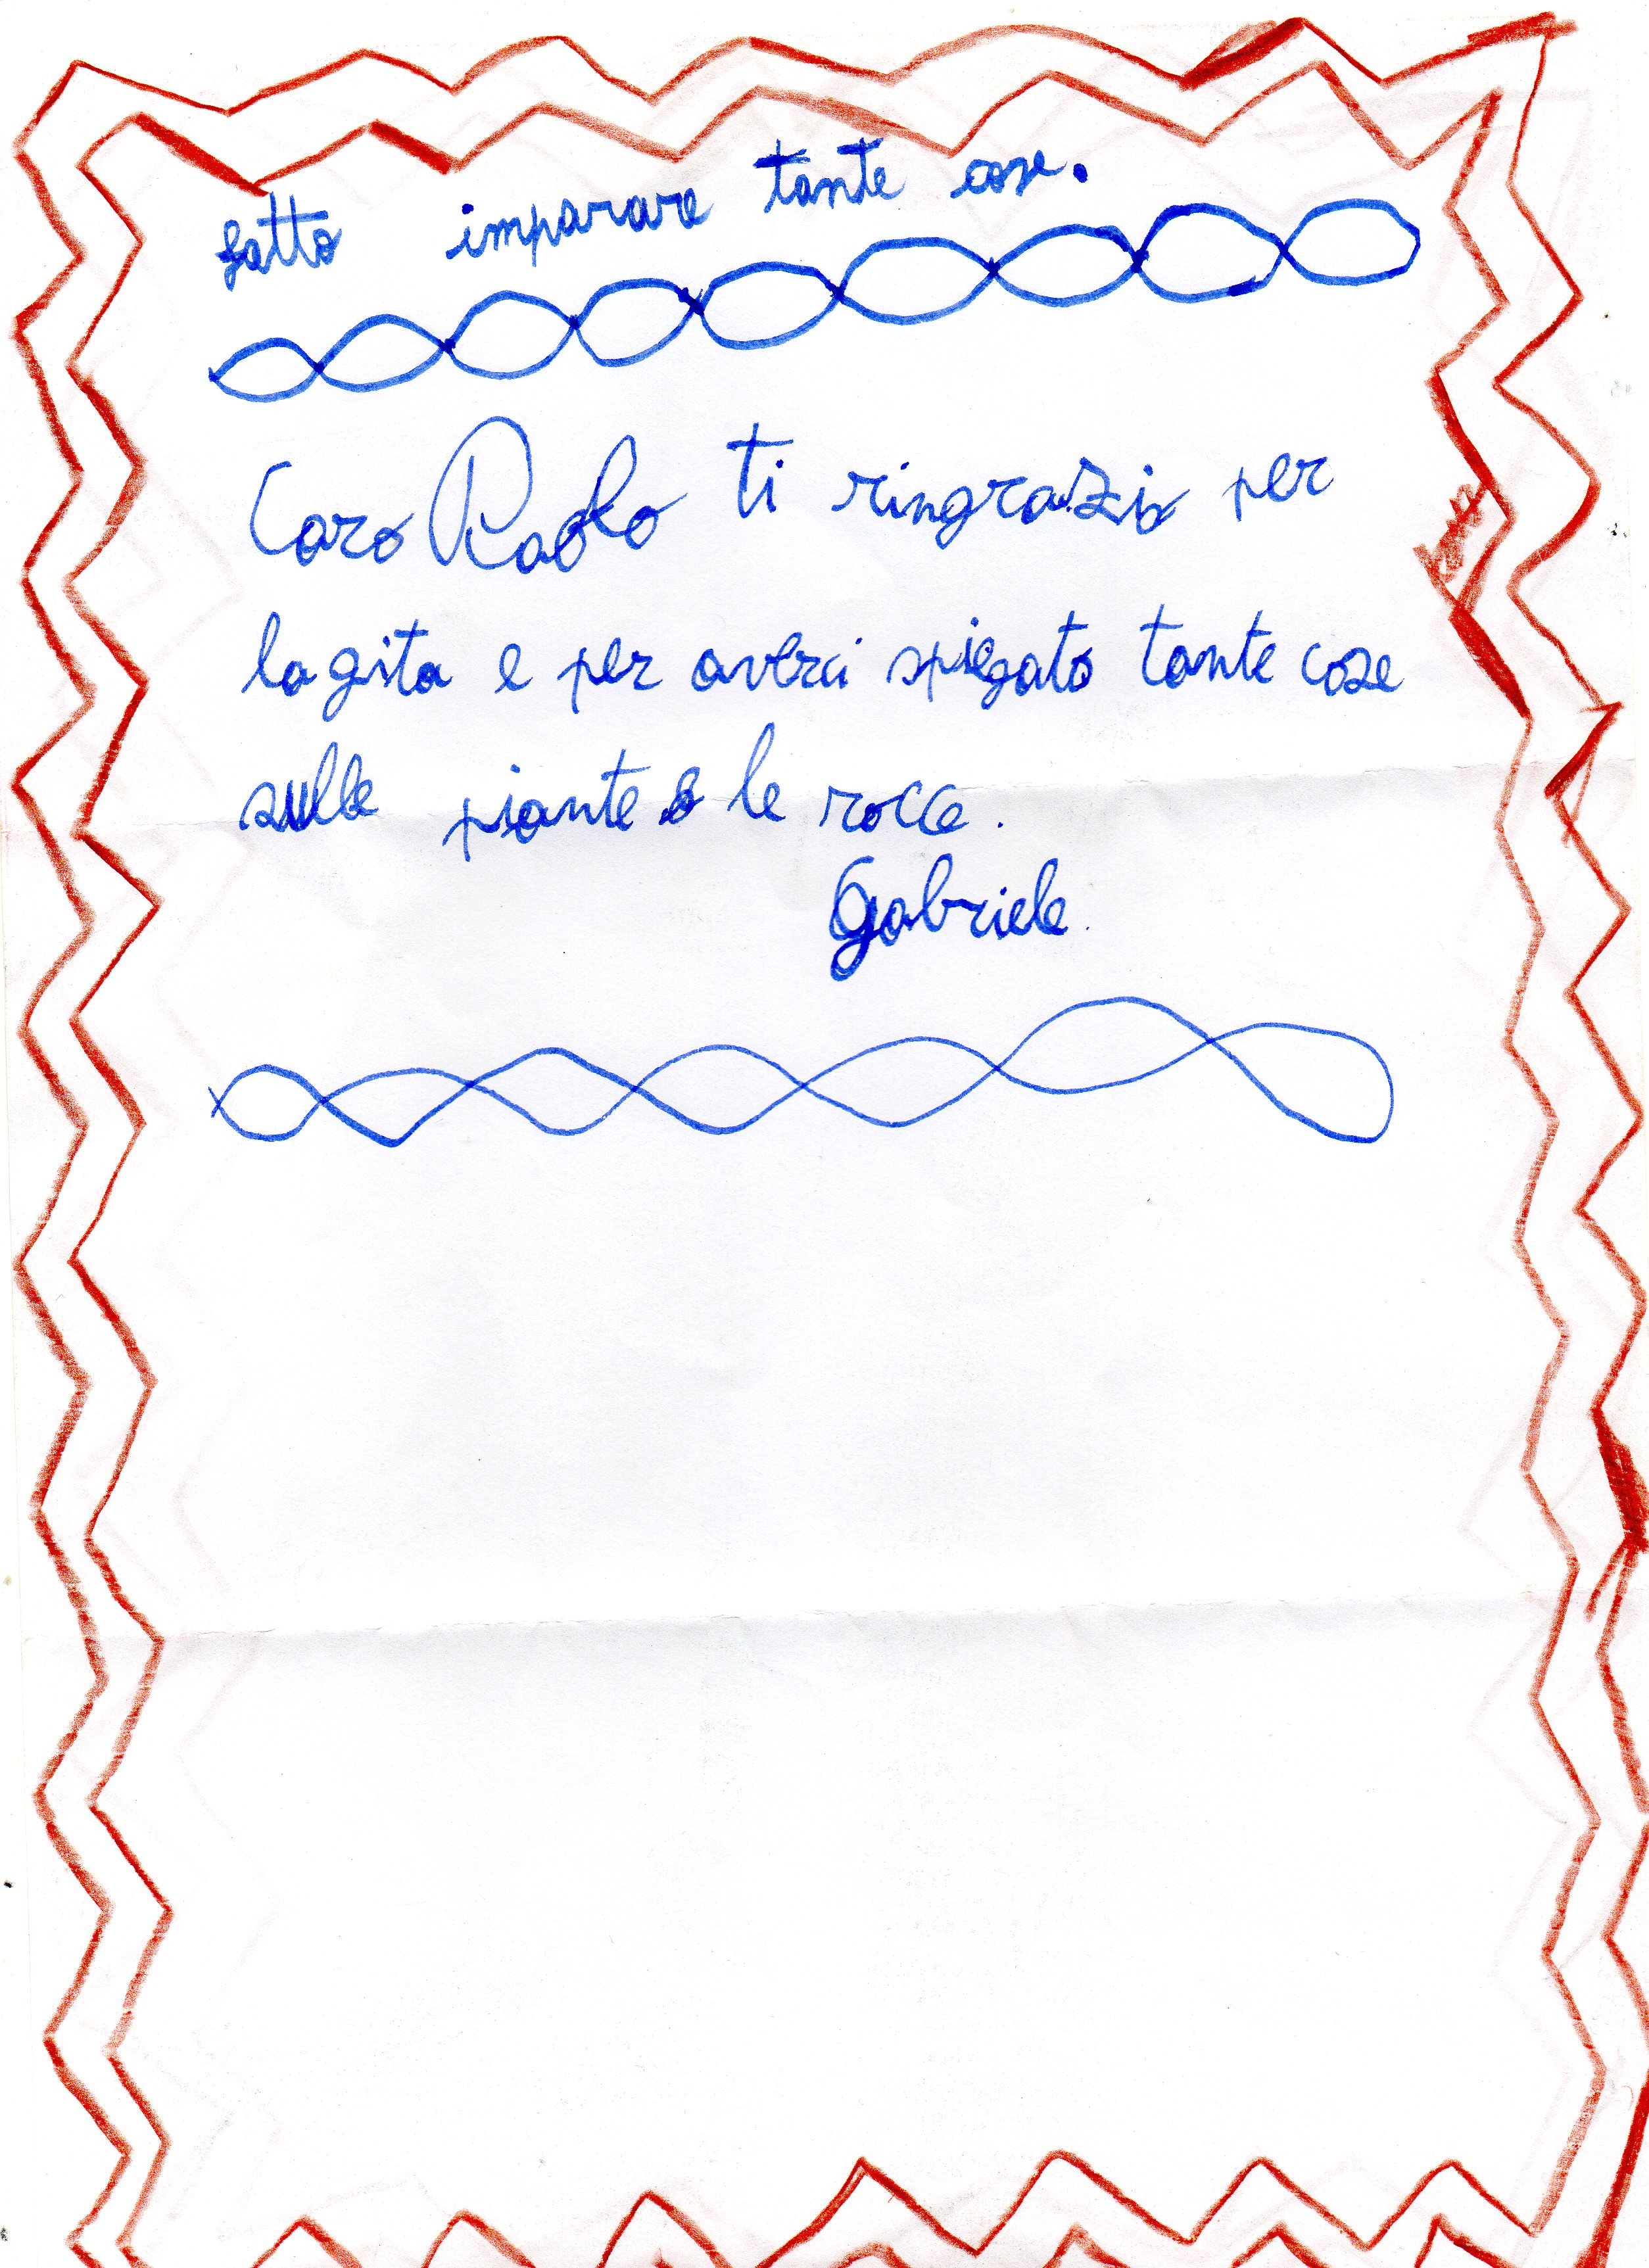 fatto imparare tante cose.
Caro Paolo ti ringrazio per
la gita e per averci spiegato tante cose
sulle piante e le rocce.
Gabriele.